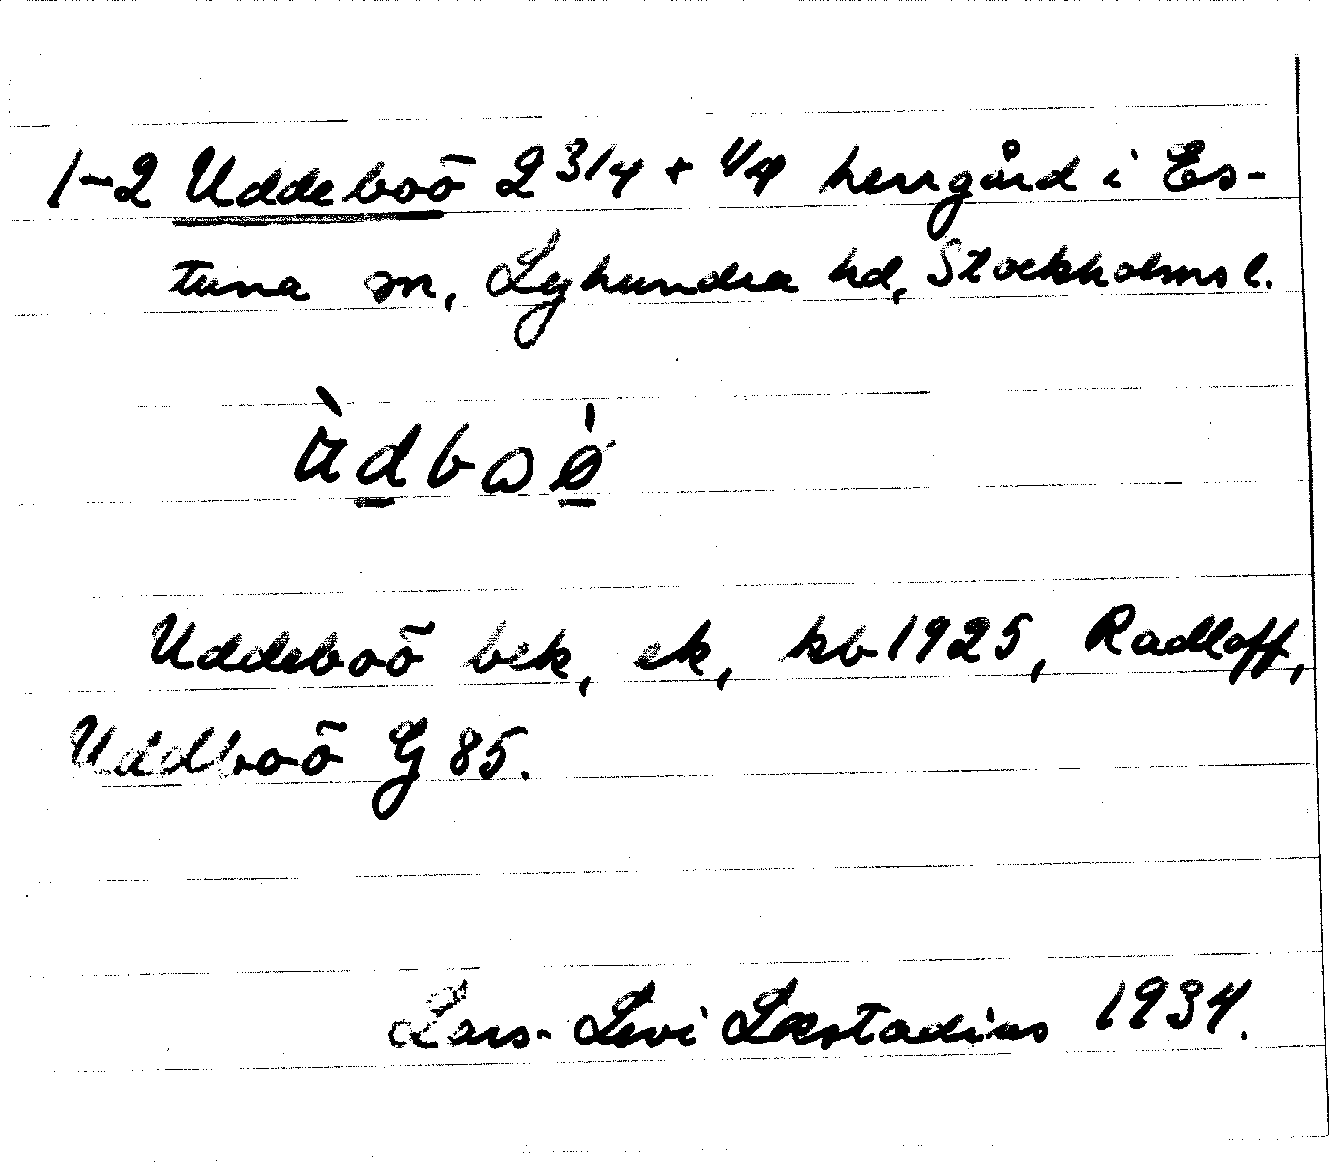 1-2 Uddeboö 2 3/4 + 1/4 herrgård i Es-
tuna sn, Lyhundra hd, Stockholms l.
Uddeboö bek, ek, kb 1925, Radloff,
Uddboö G 85.
Lars-Levi Læstadius 1934.